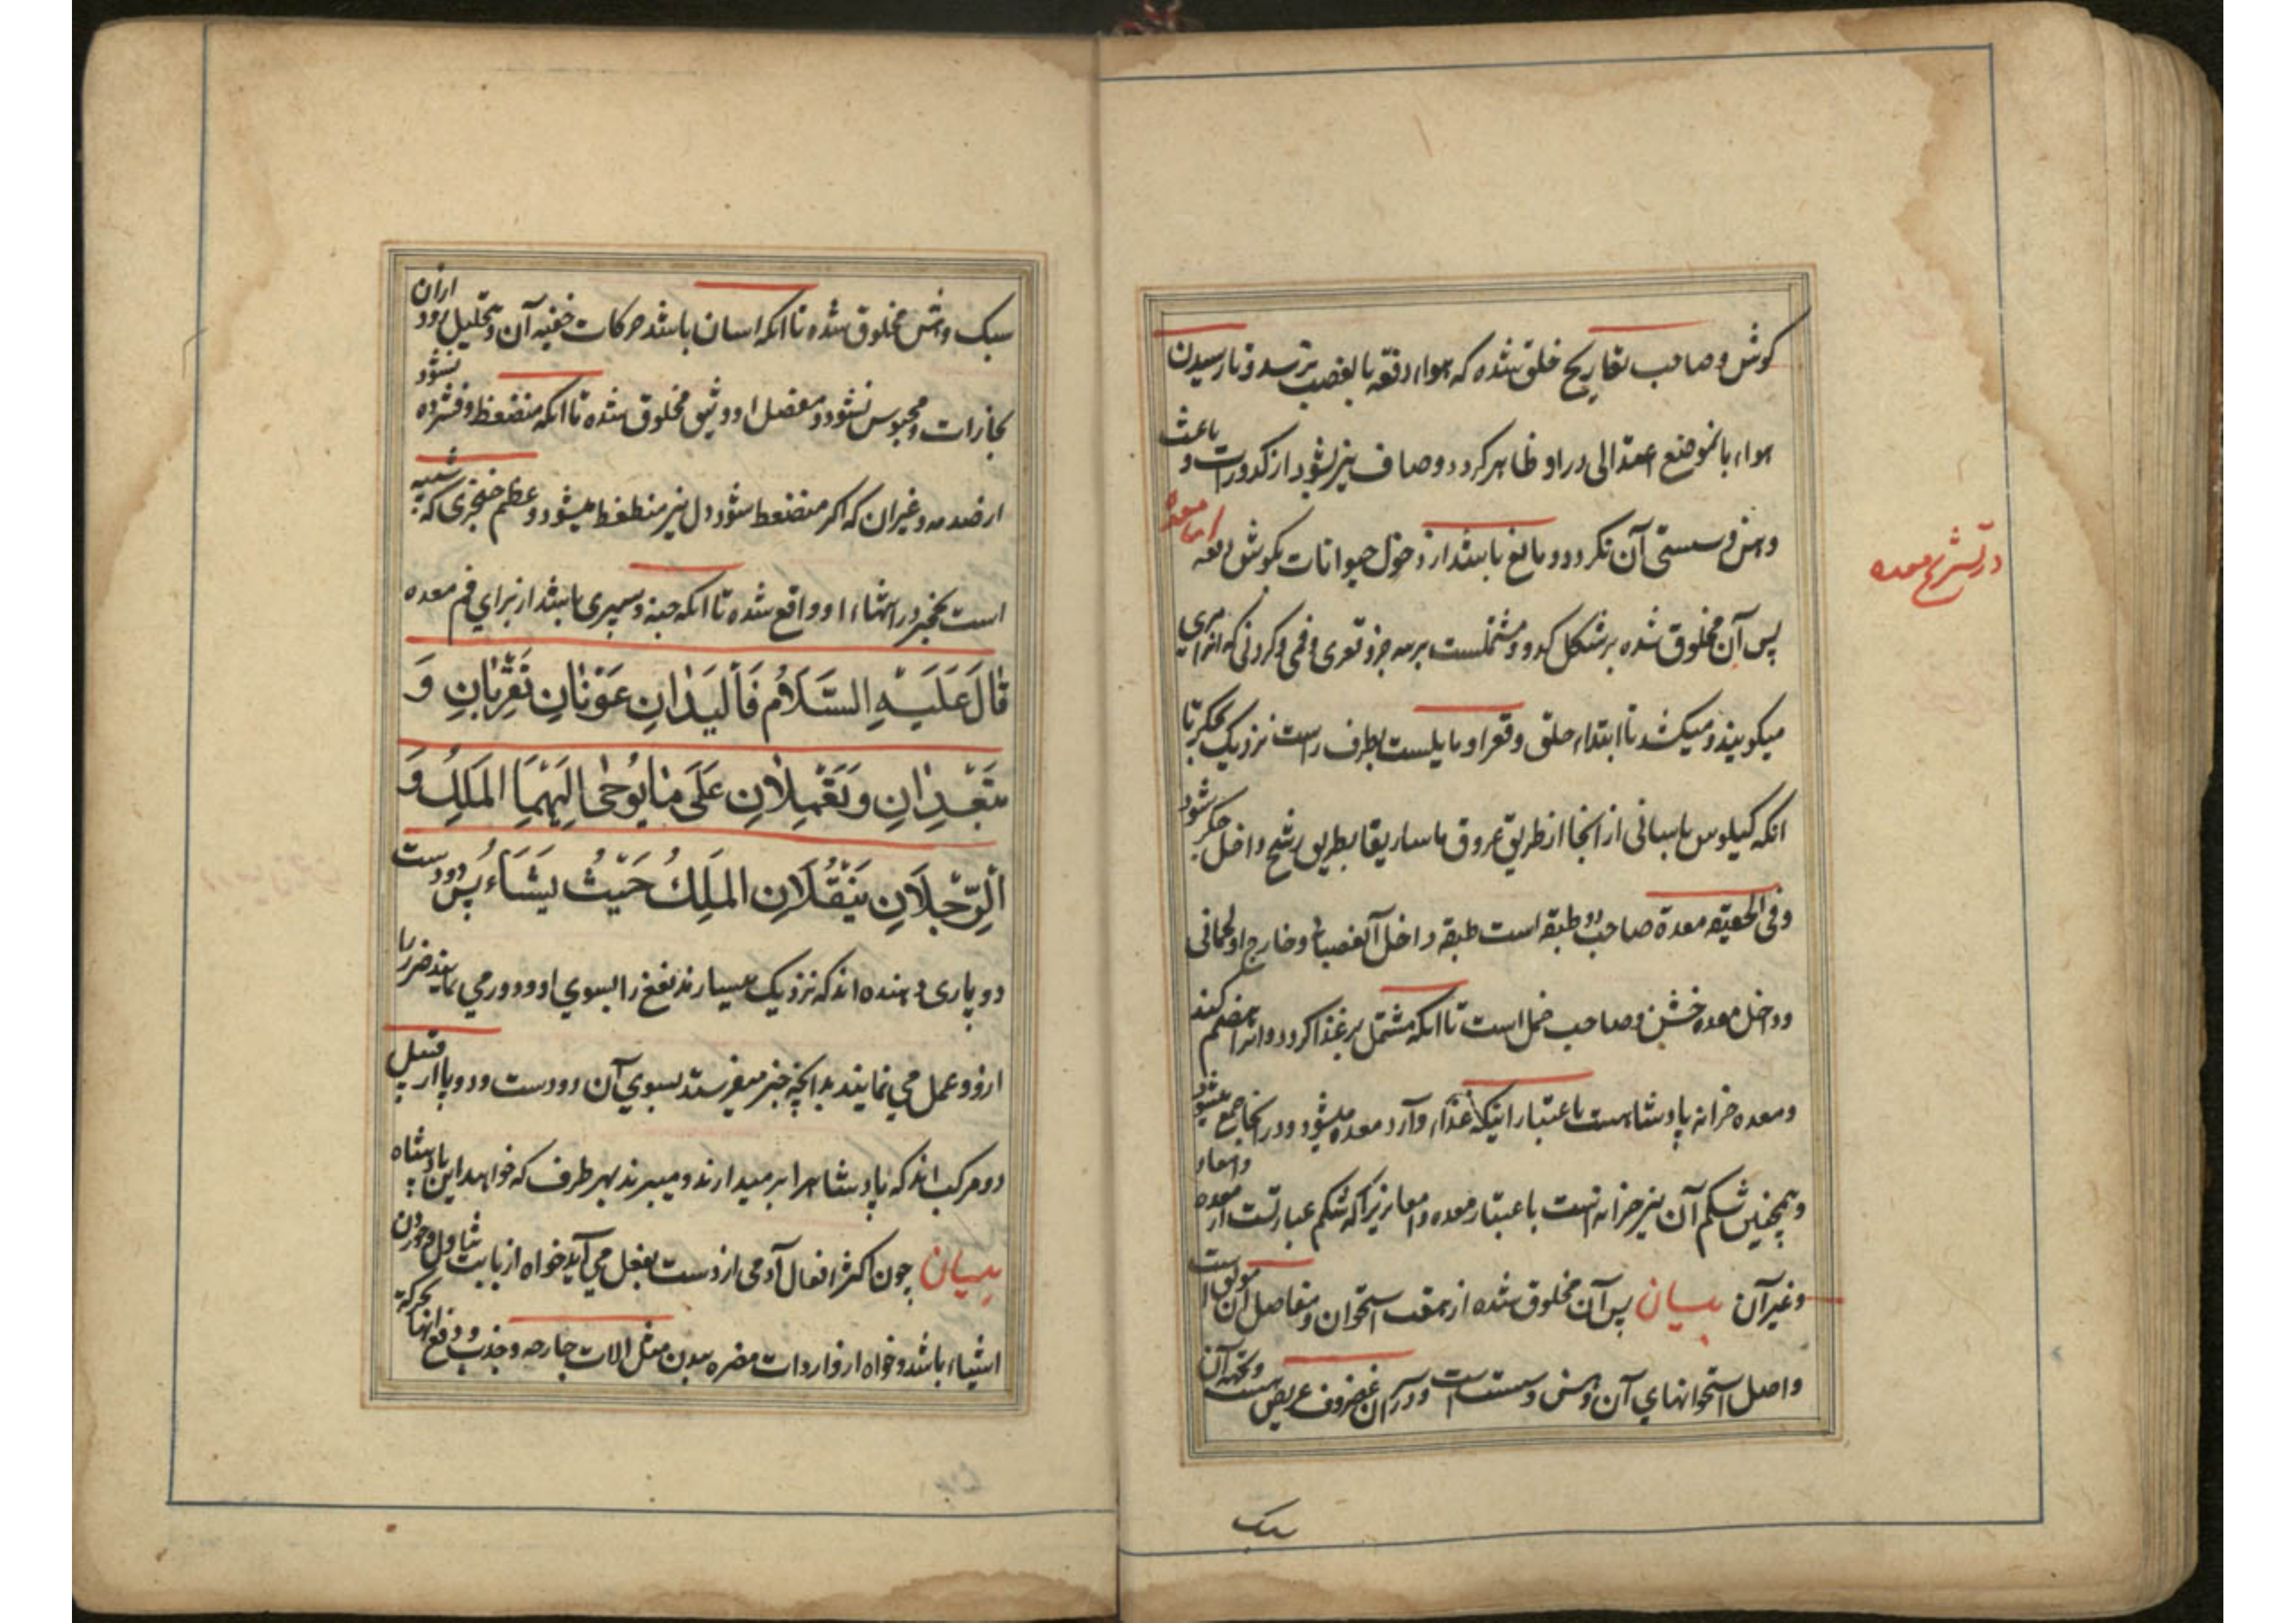 کوش و صاحب تعاریج خلق شده که هواء دفعة بالعصب نرسد و تا رسیدن
هواء بانموضع اعتدالی در او ظاهر کردد و صاف نیز بشود از کدورات و باعث
وهن و سستی آن نکردد و مانع باشد از دخول حیوانات بکوش دفعه اما معده
پس آن مخلوق شده بر شکل کدو و مشتملست بر سه جزو قعری و فمی و کردنی که انرا مری
میکویند و میکشد تا ابتداء حلق و قعر او مایلست بطرف راست نزدیک بجکر تا
انکه کیلوس باسانی از انجا از طریق عروق ماساریقا بطریق رشح داخل جکر شود
و فی الحقیقه معدة صاحب دو طبقه است طبقه داخل آن عصبانی و خارج او لحمانی
و داخل معده خشن و صاحب خمل است تا انکه مشتمل بر غذا کردد و انرا هضم کند
و معده خزانه پادشاهست باعتبار اینکه غذاء وآرد معده میشود و در انجا جمع میشود
و همچنین شکم آن نیز خزانه انست باعتبار معده و امعا زیرا که شکم عبارتست از معده و امعاء
و غیر آن بیسان پس آن مخلوق شده از هفت استخوان و مفاصل آن موثق است
و اصل استخوانهای آن وهش و سست است و در آن غضروف عریض هست و تحته آن
سبک
در تشریح معده
سبک و هش مخلوق شده تا انکه اسان باشد حرکات خفیه آن و تحلیل رود ازان
بخارات و محبوس نشود و مفصل او وثیق مخلوق شده تا انکه منضغط و فشرده نشود
از صدمه و غیر ان که اکر منضغط شود دل نیز منطغط میشود و عظم خنجری که شبیه
است بخنجر در انتهاء او واقع شده تا انکه جبنه و سپری باشد از برای فم معده
قَالَ عَلَیْهِ السَّلَامُ فَالْیَدَانِ عَوْنَانِ تُقَرِّبَانِ وَ
تُبَعِّدَانِ وَ تَعْمَلَانِ عَلَی مَا یُوحٰی اِلَیْهِمَا الْمَلِكُ وَ
الرِّجْلَانِ یَنْقُلَانِ الْمَلِكُ حَیْثُ یَشَاءُ پس دو دست
دو یاری دهنده اند که نزدیک میسازند نفع را بسوی او و دور می نمایند ضرر را
از و و عمل می نمایند بدانچه خبر میفرستد بسوی آن دو دست و دو پا از قبیل
دو مرکب اند که پادشاه را بر میدارند و میبرند بهر طرف که خواهد این پادشاه
بیسان چون اکثر افعال آدمی از دست بفعل می آید خواه از بابت تناول و خوردن
اشیاء باشد و خواه از واردات مضره ببدن مثل الات جارحه و جذب و دفع انها بحرکة